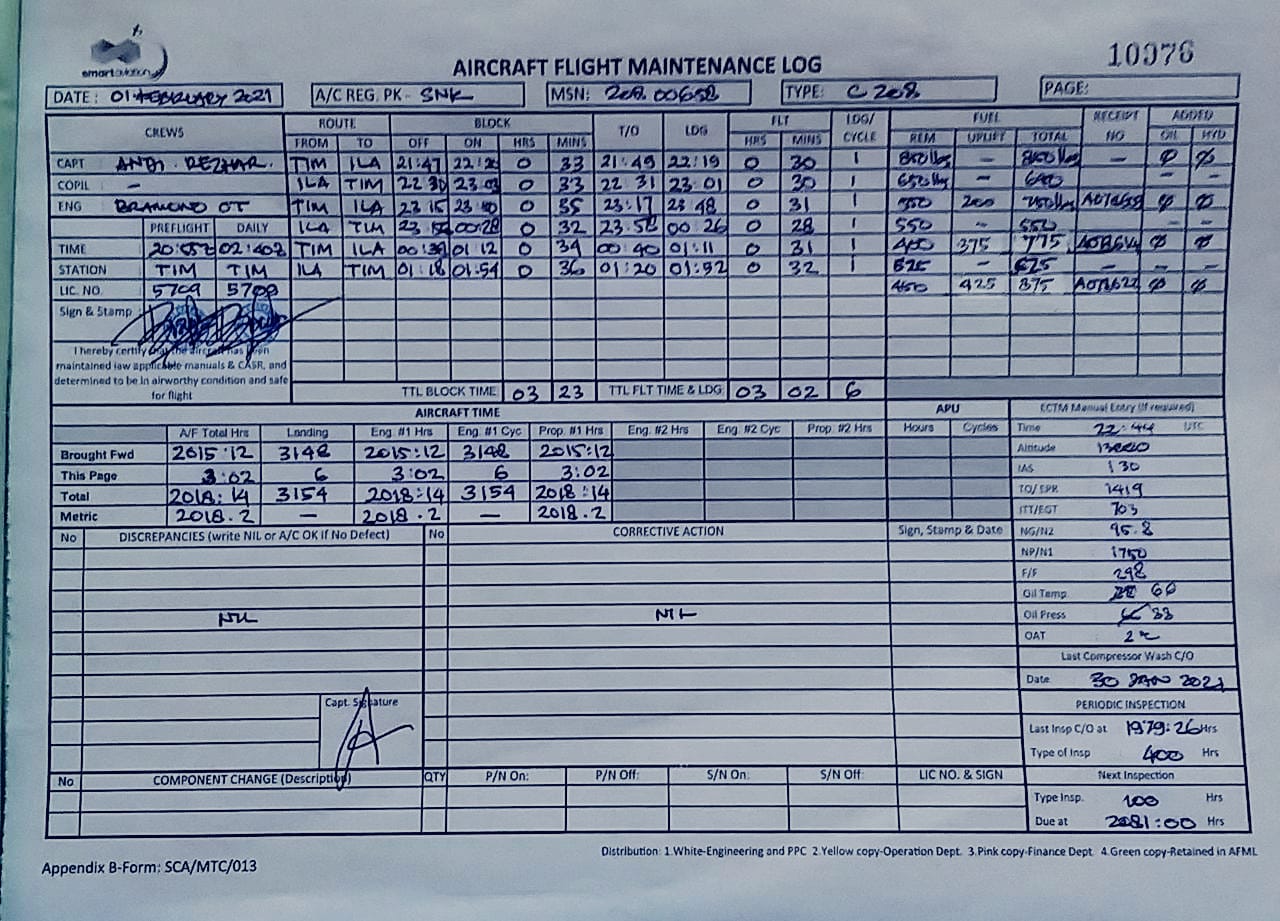 smartaviation
10976
AIRCRAFT FLIGHT MAINTENANCE LOG
DATE : 01 FEBRUARY 2021 A/C REG. PK - SNK MSN: 208 00658 TYPE: C 208 PAGE:
CREWS ROUTE BLOCK T/O LDG FLT LDG/ CYCLE FUEL RECEIPT NO ADDED
FROM TO OFF ON HRS MINS HRS MINS REM UPLIFT TOTAL OIL HYD
CAPT ANDI . TIM ILA 21:47 33 21:49 22:19 0 30 1 - - Ø Ø
COPIL - ILA TIM 22 30 0 33 22 31 23:01 0 30 1 650 lbs - - -
ENG TIM ILA 23 15 23 50 0 35 23:17 23 48 0 31 1 550 200 Ø Ø
PREFLIGHT DAILY ILA TIM 00:28 0 32 23:58 00:26 0 28 1 550 - 550 - -
TIME TIM ILA 01:12 0 34 00:40 01:11 0 31 1 400 375 775 Ø Ø
STATION TIM TIM ILA TIM 01:18 01:54 0 36 01:20 01:52 0 32 1 625 - 625 - - -
LIC. NO. 5709 5709 450 425 875 Ø Ø
Sign & Stamp
I hereby certify that the aircraft has been
maintained iaw applicable manuals & CASR, and
determined to be in airworthy condition and safe
for flight
TTL BLOCK TIME 03 23 TTL FLT TIME & LDG 03 02 6
AIRCRAFT TIME APU ECTM Manual Entry (if required)
A/F Total Hrs Landing Eng. #1 Hrs Eng. #1 Cyc Prop. #1 Hrs Eng. #2 Hrs Eng. #2 Cyc Prop. #2 Hrs Hours Cycles Time 22:44 UTC
Brought Fwd 2015:12 3148 2015:12 3148 2015:12 Altitude
This Page 3:02 6 3:02 6 3:02 IAS 130
Total 2018:14 3154 2018:14 3154 2018:14 TO/EPR 1419
Metric 2018.2 - 2018.2 - 2018.2 ITT/EGT 703
No DISCREPANCIES (write NIL or A/C OK if No Defect) No CORRECTIVE ACTION Sign, Stamp & Date NG/N2 95.8
NP/N1 1750
F/F 298
Oil Temp 66
NIL NIL Oil Press 33
OAT
Last Compressor Wash C/O
Date 30 JAN 2021
Capt. Signature PERIODIC INSPECTION
Last Insp C/O at 1979:26 Hrs
Type of Insp 400 Hrs
No COMPONENT CHANGE (Description) QTY P/N On: P/N Off: S/N On: S/N Off: LIC NO. & SIGN Next Inspection
Type Insp. 100 Hrs
Due at 2081:00 Hrs
Distribution: 1.White-Engineering and PPC 2.Yellow copy-Operation Dept. 3.Pink copy-Finance Dept 4.Green copy-Retained in AFML
Appendix B-Form: SCA/MTC/013